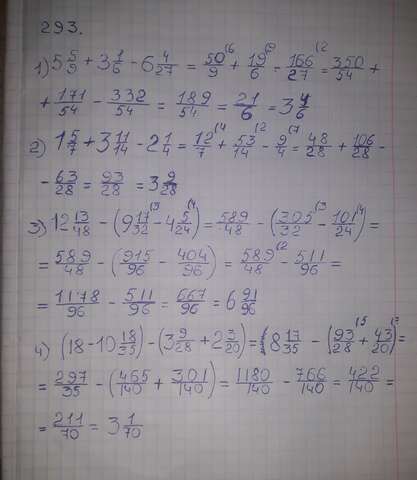 293.
1) 5 5/9 + 3 1/6 - 6 4/27 = 50/9 (6 + 19/6 (9 - 166/27 (2 = 350/54 +
+ 171/54 - 332/54 = 189/54 = 21/6 = 3 1/6
2) 1 5/7 + 3 11/14 - 2 1/4 = 12/7 (4 + 53/14 (2 - 9/4 (7 = 48/28 + 106/28 -
- 63/28 = 93/28 = 3 9/28
3) 12 13/48 - (9 17/32 - 4 5/24) = 589/48 - (305/32 (3 - 101/24 (4) =
= 589/48 - (915/96 - 404/96) = 589/48 (2 - 511/96 =
= 1178/96 - 511/96 = 667/96 = 6 91/96
4) (18 - 10 18/35) - (3 9/28 + 2 3/20) = 8 17/35 - (93/28 (5 + 43/20 (7) =
= 297/35 - (465/140 + 301/140) = 1180/140 - 766/140 = 422/140 =
= 211/70 = 3 1/70